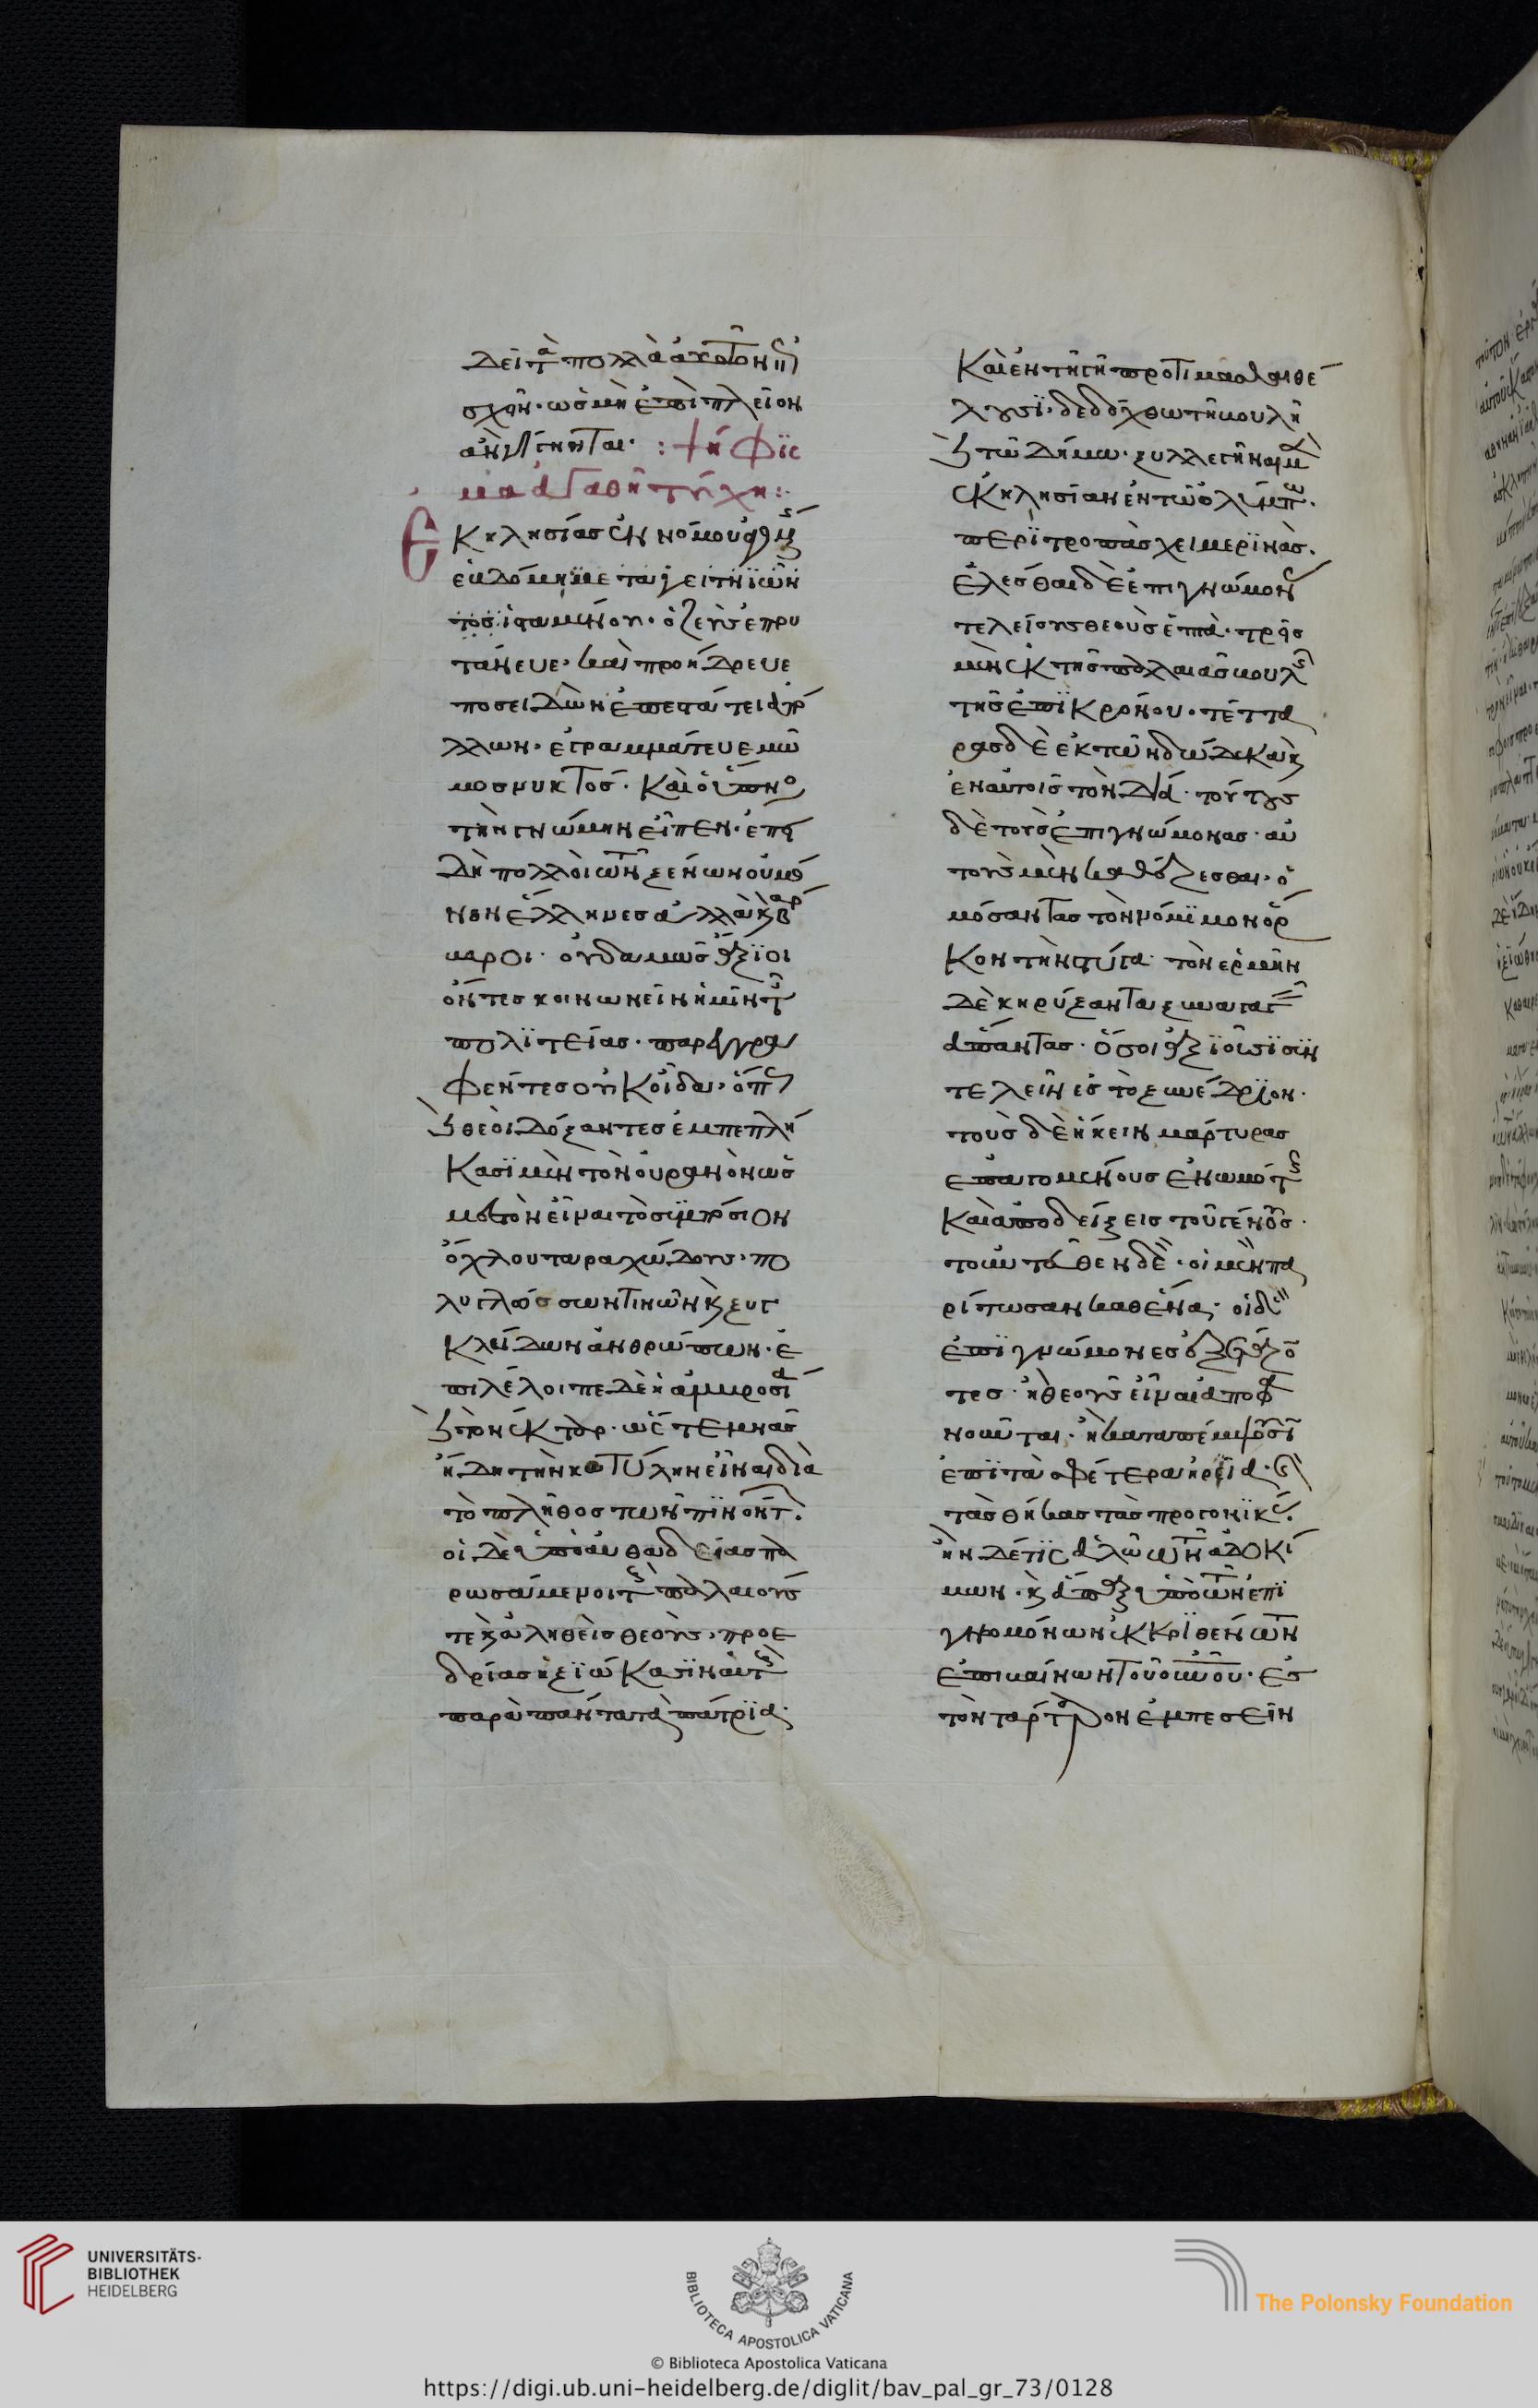 δεῖ τὰ πολλὰ αὐτῶν ἐπι
σχεῖν· ὡς μὴ ἐπὶ πλεῖον
ἀνιῶνται· :ψήφισ
μα ἀγαθῆ τύχη:
Εκκλησίας ἐννόμου ἀγομένης
ἑβδόμη μεταγειτνιῶν
τοσ ἱσταμένου· ὁ ζεὺς ἐπρυ
τάνευε· καὶ προήδρευε
ποσειδῶν ἐπεστάτει ἀπό
λλων· ἐγραμμάτευε μῶ
μος νυκτός· καὶ ὁ ὕπνος
τὴν γνώμην εἶπεν· ἐπει
δὴ πολλοὶ τῶν ξένων οὐ μό
νον ἕλληνες ἀλλὰ καὶ βάρ
βαροι· οὐδαμῶς ἄξιοι
ὄντες κοινωνεῖν ἡμῖν τῆς
πολιτείας· παρεγγρα
φέντες οὐκ οἶδα ὅπως
καὶ θεοὶ δόξαντες ἐμπεπλή
κασι μὲν τὸν οὐρανὸν ὡς
μεστὸν εἶναι τὸ συμπόσιον
ὄχλου ταραχώδους· πο
λυγλώσσων τινῶν καὶ ξυγ
κλύδων ἀνθρώπων· ἐ
πιλέλοιπε δὲ ἡ ἀμβροσία
καὶ τὸ νέκταρ· ὥστε μνᾶς
ἤδη τὴν κοτύλην εἶναι διὰ
τὸ πλῆθος τῶν πινόντων·
οἱ δὲ ὑπὸ αὐθαδείας πα
ρωσάμενοι τοὺς παλαιούς
τε καὶ ἀληθεῖς θεούς· προε
δρίας ἠξιώκασιν αὑτοὺς
παρὰ πάντα τὰ πάτρια·
Καὶ ἐν τῆ γῆ προτιμᾶσθαι θέ
λουσι· δεδόχθω τῆ βουλῆ
καὶ τῶ δήμω· ξυλλεγῆναι μὲν
ἐκκλησίαν ἐν τῶ ὀλύμπω·
περὶ τροπὰς χειμερινάς·
ἑλέσθαι δὲ ἐπιγνώμονας
τελείους θεοὺς ἑπτά· τρεῖς
μὲν ἐκ τῆς παλαιᾶς βουλῆς
τῆς ἐπὶ κρόνου· τέττα
ρας δὲ ἐκ τῶν δώδεκα καὶ
ἐν αὐτοῖς τὸν δία· τούτους
δὲ τοὺς ἐπιγνώμονας· αὐ
τοὺς μὲν καθέζεσθαι· ὀ
μόσαντας τὸν νόμιμον ὅρ
κον τὴν στύγα· τὸν ἑρμῆν
δὲ κηρύξαντα ξυναγαγεῖν
ἅπαντας· ὅσοι ἀξιοῦσι συν
τελεῖν ἐς τὸ ξυνέδριον·
τοὺς δὲ ἥκειν μάρτυρας
ἐπαγομένους ἐνωμότους
καὶ ἀποδείξεις τοῦ γένους·
τοὐντεῦθεν δὲ· οἱ μὲν πα
ρίτωσαν καθένα· οἱ δὲ
ἐπιγνώμονες ἐξετάζον
τες· ἢ θεοὺς εἶναι ἀποφα
νοῦνται· ἢ καταπέμψουσι
ἐπὶ τὰ σφέτερα ἠρία· καὶ
τὰς θήκας τὰς προγονικάς·
ἢν δέ τις ἁλῶ τῶν ἀδοκί
μων· καὶ ἅπαξ ὑπὸ τῶν ἐπι
γνωμόνων ἐκκριθέντων
ἐπιβαίνων τοῦ οὐρανοῦ· ἐς
τὸν τάρταρον ἐμπεσεῖν
UNIVERSITÄTS-
BIBLIOTHEK
HEIDELBERG
BIBLIOTECA APOSTOLICA VATICANA
© Biblioteca Apostolica Vaticana
The Polonsky Foundation
https://digi.ub.uni-heidelberg.de/diglit/bav_pal_gr_73/0128